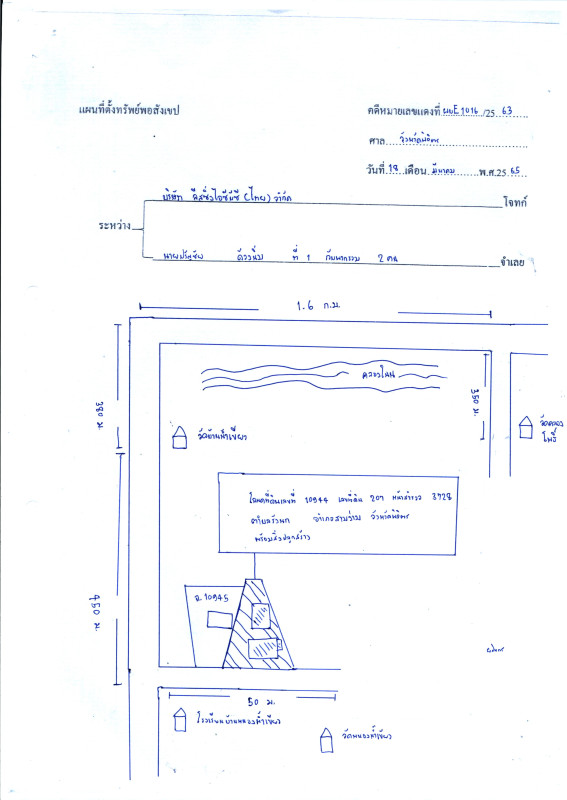 แผนที่ตั้งทรัพย์พอสังเขป
คดีหมายเลขแดงที่ ผบE1016 /25 63
ศาล จังหวัดพิจิตร
วันที่ 18 เดือน มีนาคม พ.ศ.25 65
บริษัท ลีสซิ่งไอซีบีซี (ไทย) จำกัด โจทก์
ระหว่าง
ที่ 1 กับพวกรวม 2 คน จำเลย
1.6 ก.ม.
คลองโนน
380 ม.
350 ม.
วัดบ้านน้ำเขียว
วัดคลอง
โพธิ์
โฉนดที่ดินเลขที่ 10944 เลขที่ดิน 207 หน้าสำรวจ 3728
ตำบลรังนก อำเภอสามง่าม จังหวัดพิจิตร
พร้อมสิ่งปลูกสร้าง
750 ม.
ฉ. 10945
50 ม.
โรงเรียนบ้านหนองน้ำเขียว
วัดหนองน้ำเขียว